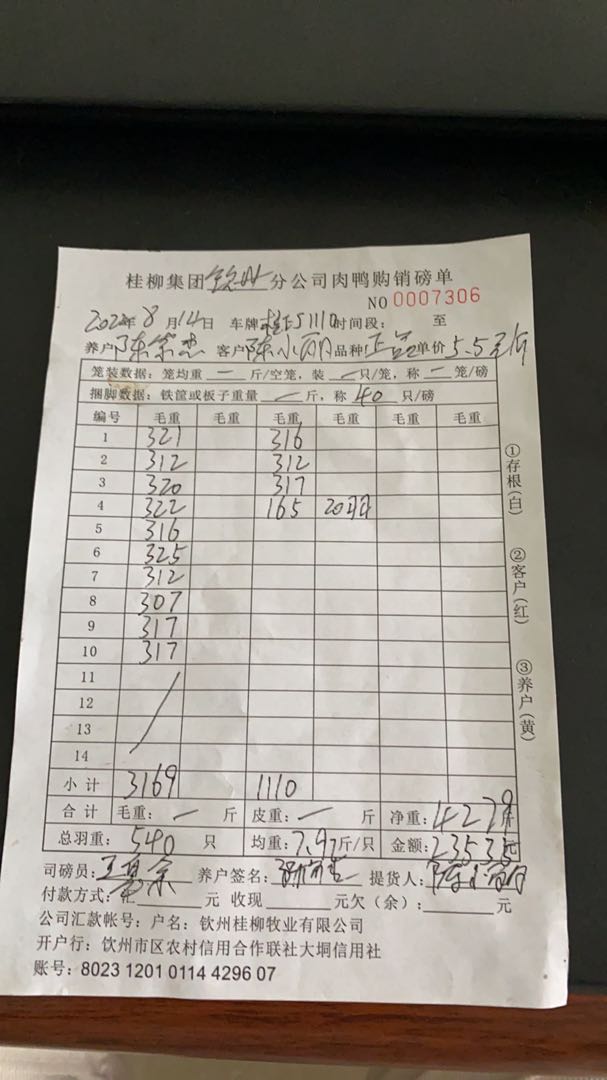 桂柳集团钦州分公司肉鸭购销磅单
NO 0007306
2022年8月14日 车牌 1110 时间段: 至
养户 陈 客户 陈小丽 品种 正品 单价 5.5元/斤
笼装数据: 笼均重 — 斤/空笼, 装 — 只/笼, 称 — 笼/磅
捆脚数据: 铁筐或板子重量 — 斤, 称 40 只/磅
编号 毛重 毛重 毛重 毛重 毛重
1 321 316
2 312 312
3 320 317
4 322 165 20羽
5 316
6 325
7 312
8 307
9 317
10 317
11
12
13
14
小计 3169 1110
合计 毛重: — 斤 皮重: — 斤 净重: 4279斤
总羽重: 540 只 均重: 7.92斤/只 金额: 23535元
司磅员: 养户签名: 提货人:
付款方式: 汇 元 收现 元欠(余): 元
公司汇款帐号: 户名: 钦州桂柳牧业有限公司
开户行: 钦州市区农村信用合作联社大垌信用社
账号: 8023 1201 0114 4296 07
①存根(白)
②客户(红)
③养户(黄)